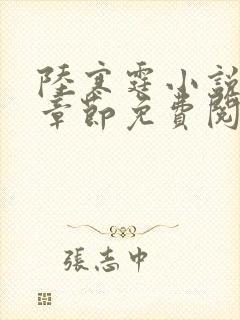 陸寒霆小說
章節免費閱
張志中